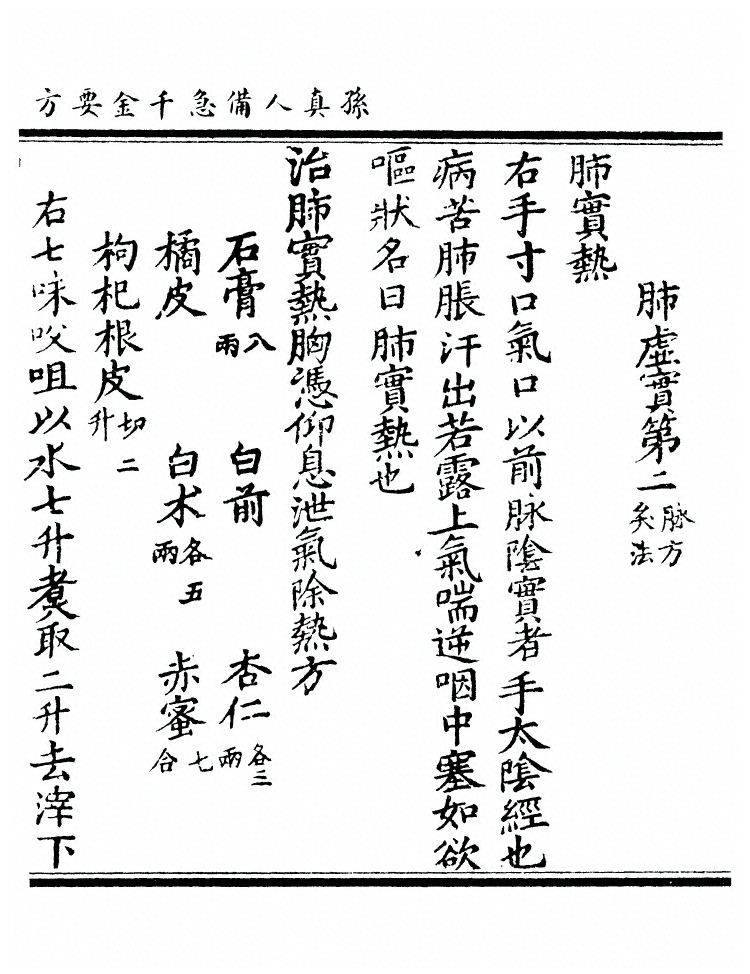 孫真人備急千金要方
肺虛實第二脉方灸法
肺實熱
右手寸口氣口以前脉陰實者手太陰經也
病苦肺脹汗出若露上氣喘逆咽中塞如欲
嘔狀名曰肺實熱也
治肺實熱胸憑仰息泄氣除熱方
石膏八兩 白前 杏仁各三兩
橘皮 白术各五兩 赤蜜七合
枸杞根皮切二升
右七味㕮咀以水七升煑取二升去滓下